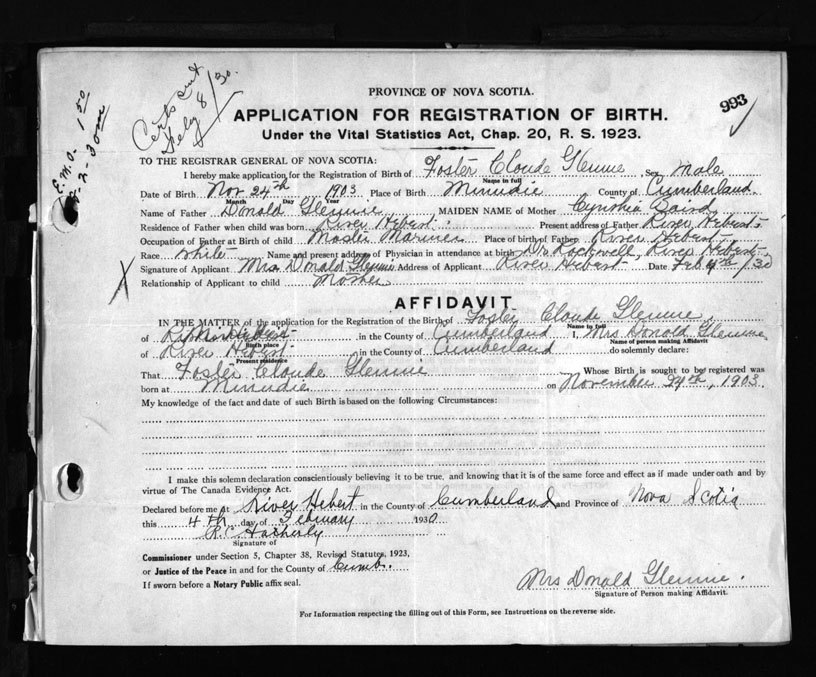 Certs sent
Feby 8/30.
E.M.O. 1.50
993
PROVINCE OF NOVA SCOTIA.
APPLICATION FOR REGISTRATION OF BIRTH.
Under the Vital Statistics Act, Chap. 20, R. S. 1923.
TO THE REGISTRAR GENERAL OF NOVA SCOTIA:
I hereby make application for the Registration of Birth of Foster Claude Glennie Sex Male
Name in full
Date of Birth Nov 24th 1903 Place of Birth Minudie County of Cumberland
Month Day Year
Name of Father Donald Glennie MAIDEN NAME of Mother Cynthia Baird
Residence of Father when child was born River Hebert Present address of Father River Hebert
Occupation of Father at Birth of child Master Mariner Place of birth of Father River Hebert
Race White Name and present address of Physician in attendance at birth Dr Rockwell, River Hebert
Signature of Applicant Mrs Donald Glennie Address of Applicant River Hebert Date Feb 4th /30
Relationship of Applicant to child Mother
X
AFFIDAVIT
IN THE MATTER of the application for the Registration of the Birth of Foster Claude Glennie,
Name in full
of Minudie in the County of Cumberland I, Mrs Donald Glennie
Birth place Name of person making Affidavit
of River Hebert in the County of Cumberland do solemnly declare:
Present residence
That Foster Claude Glennie Whose Birth is sought to be registered was
born at Minudie on November 24th, 1903.
My knowledge of the fact and date of such Birth is based on the following Circumstances:
I make this solemn declaration conscientiously believing it to be true, and knowing that it is of the same force and effect as if made under oath and by
virtue of The Canada Evidence Act.
Declared before me at River Hebert in the County of Cumberland and Province of Nova Scotia
this 4th day of February 1930
Hatherly
Signature of
Commissioner under Section 5, Chapter 38, Revised Statutes, 1923,
or Justice of the Peace in and for the County of Cumb.
If sworn before a Notary Public affix seal.
Mrs Donald Glennie.
Signature of Person making Affidavit.
For Information respecting the filling out of this Form, see Instructions on the reverse side.